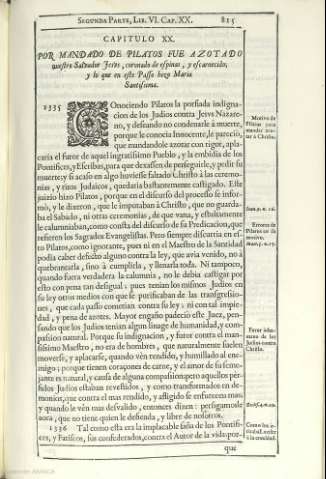 SEGUNDA PARTE, LIB. VI. CAP. XX. 815
CAPITULO XX.
POR MANDADO DE PILATOS FUE AZOTADO
nuestro Salvador Jesvs, coronado de espinas, y escarnecido,
y lo que en este Passo hizo Maria
Santissima.
1335 COnociendo Pilatos la porfiada indigna-
cion de los Judios contra Jesvs Nazare-
no, y deseando no condenarle à muerte,
porque le conocia Innocente, le pareciò,
que mandandole azotar con rigor, apla-
caria el furor de aquel ingratissimo Pueblo, y la embidia de los
Pontifices, y Escribas, para que dexassen de perseguirle, y pedir su
muerte; y si acaso en algo huviesse faltado Christo à las ceremo-
nias, y ritos Judaicos, quedaria bastantemente castigado. Este
juizio hizo Pilatos, porque en el discurso del processo se infor-
mò, y le dixeron, que le imputaban à Christo, que no guarda-
ba el Sabado, ni otras ceremonias, de que vana, y estultamente
le calumniaban, como consta del discurso de su Predicacion, que
refieren los Sagrados Evangelistas. Pero siempre discurria en es-
to Pilatos, como ignorante, pues ni en el Maestro de la Santidad
podia caber defecto alguno contra la ley, que avia venido, no à
quebrantarla, sino à cumplirla, y llenarla toda. Ni tampoco,
quando fuera verdadera la calumnia, no le debia castigar por
esto con pena tan desigual; pues tenian los mismos Judios en
su ley otros medios con que se purificaban de las transgressio-
nes, que cada passo cometian contra su ley; ni con tal impie-
dad, y pena de azotes. Mayor engaño padeciò este Juez, pen-
sando que los Judios tenian algun linage de humanidad, y com-
passion natural. Porque su indignacion, y furor contra el man-
sissimo Maestro, no era de hombres, que naturalmente suelen
moverse, y aplacarse, quando vèn rendido, y humillado al ene-
migo; porque tienen corazones de carne, y el amor de su seme-
jante es natural, y causa de alguna compassion; pero aquellos per-
fidos Judios estaban revestidos, y como transformados en de-
monios, que contra el mas rendido, y afligido se enfurecen mas;
y quando le vèn mas desvalido, entonces dizen: persigamosle
aora, que no tiene quien le defienda, y libre de nosotros.
1336 Tal como esta era la implacable saña de los Pontifi-
ces, y Fariseos, sus confederados, contra el Autor de la vida; por-
que
Motivo de
Pilatos para
mandar azo-
tar à Christo.
Errores de
Pilatos en
Furor inhu-
mano de los
Judios contra
Christo.